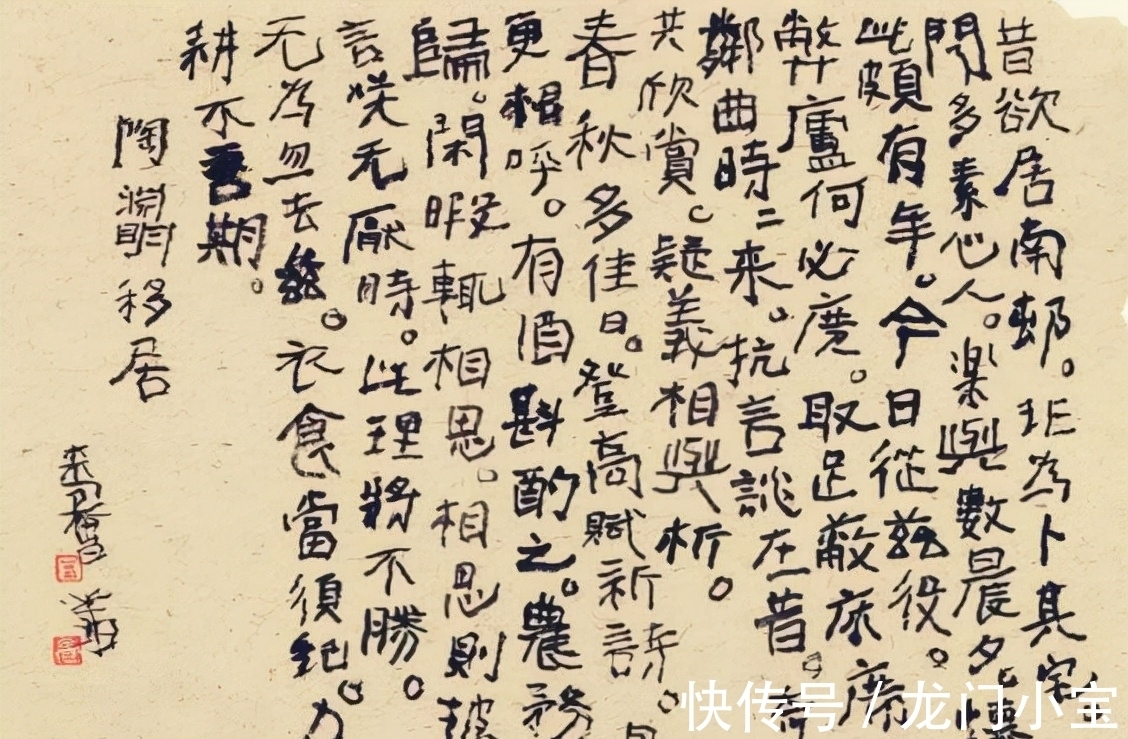 昔欲居南邨。非為卜其宅
門多素心人。楽與數晨夕。懷
此頗有年。今日從茲役。
弊廬何必廣。取足蔽床席
鄰曲時二来。抗言談在昔。奇
共欣賞。疑義相與析。
春秋多佳日。登高賦新詩。
更相呼。有酒斟酌之。農務
歸。閑暇輒相思。相思則披
言咲无厭時。此理將不勝。
无為忽去茲。衣食當須紀。力
耕不吾期。
陶淵明移居
快传号/龙门小宝